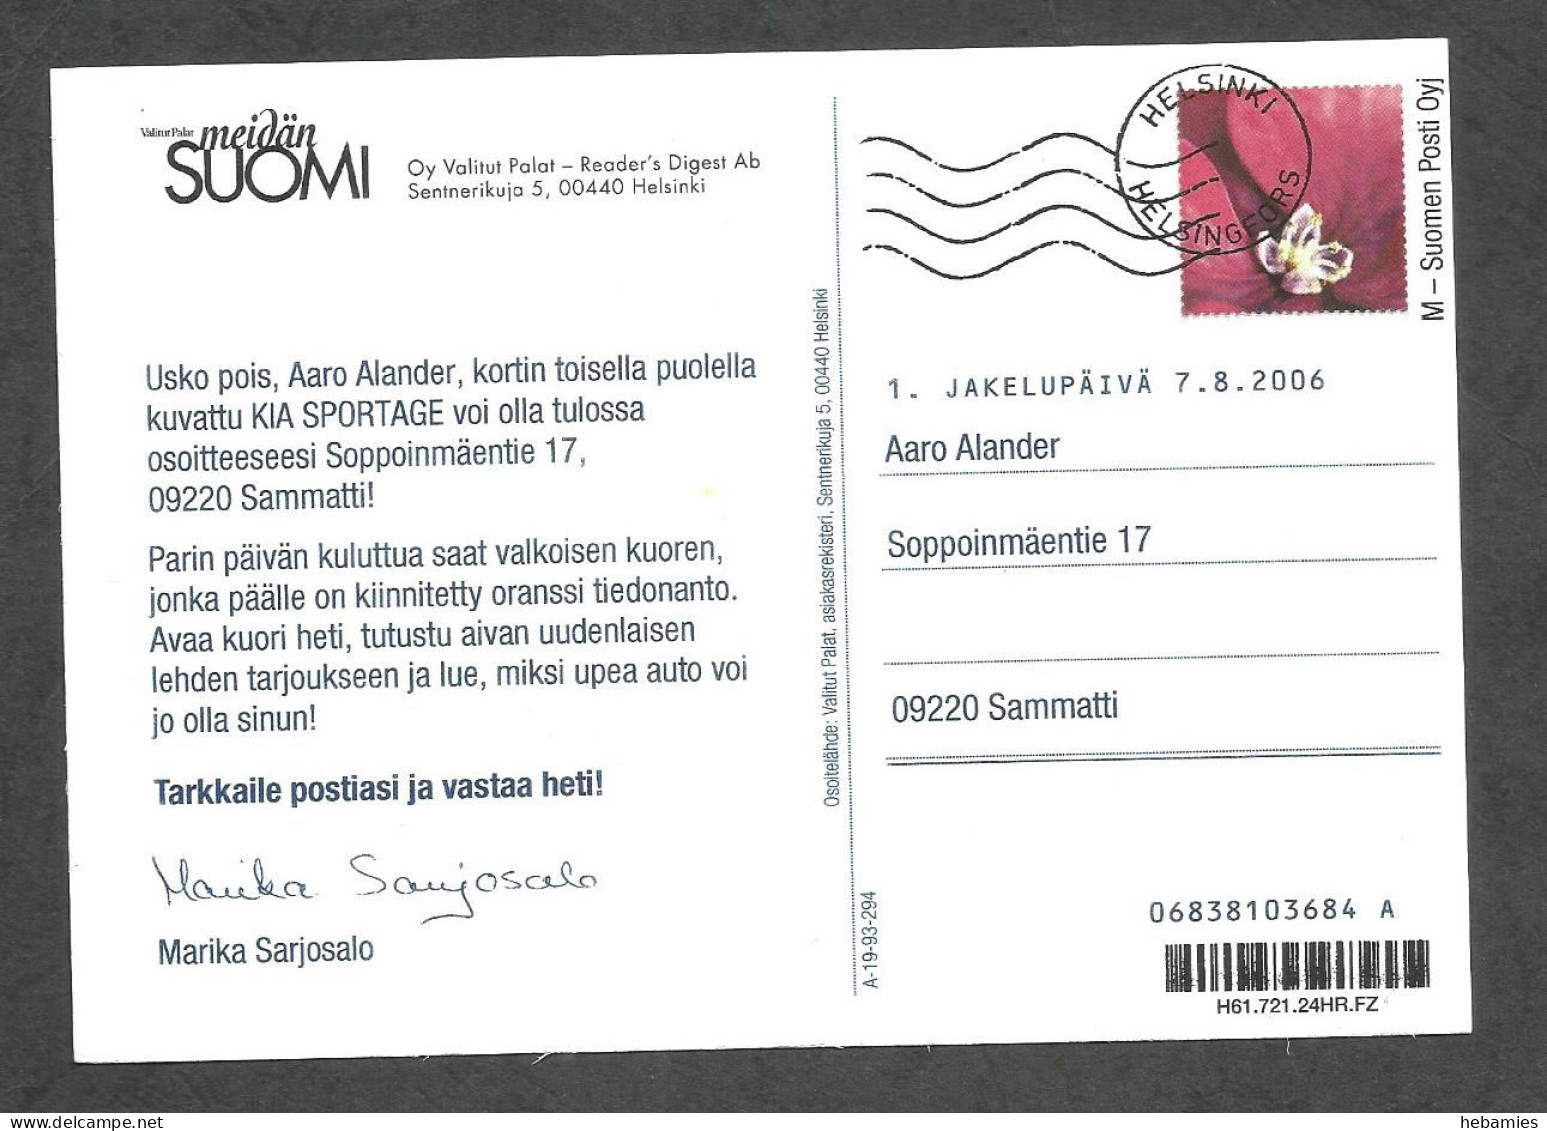 Valitut Palat
meidän
SUOMI
Oy Valitut Palat – Reader's Digest Ab
Sentnerikuja 5, 00440 Helsinki
Usko pois, Aaro Alander, kortin toisella puolella
kuvattu KIA SPORTAGE voi olla tulossa
osoitteeseesi Soppoinmäentie 17,
09220 Sammatti!
Parin päivän kuluttua saat valkoisen kuoren,
jonka päälle on kiinnitetty oranssi tiedonanto.
Avaa kuori heti, tutustu aivan uudenlaisen
lehden tarjoukseen ja lue, miksi upea auto voi
jo olla sinun!
Tarkkaile postiasi ja vastaa heti!
Marika Sarjosalo
Marika Sarjosalo
Osoitelähde: Valitut Palat, asiakasrekisteri, Sentnerikuja 5, 00440 Helsinki
A-19-93-294
HELSINKI
HELSINGFORS
M – Suomen Posti Oyj
1. JAKELUPÄIVÄ 7.8.2006
Aaro Alander
Soppoinmäentie 17
09220 Sammatti
06838103684 A
H61.721.24HR.FZ
hebamies